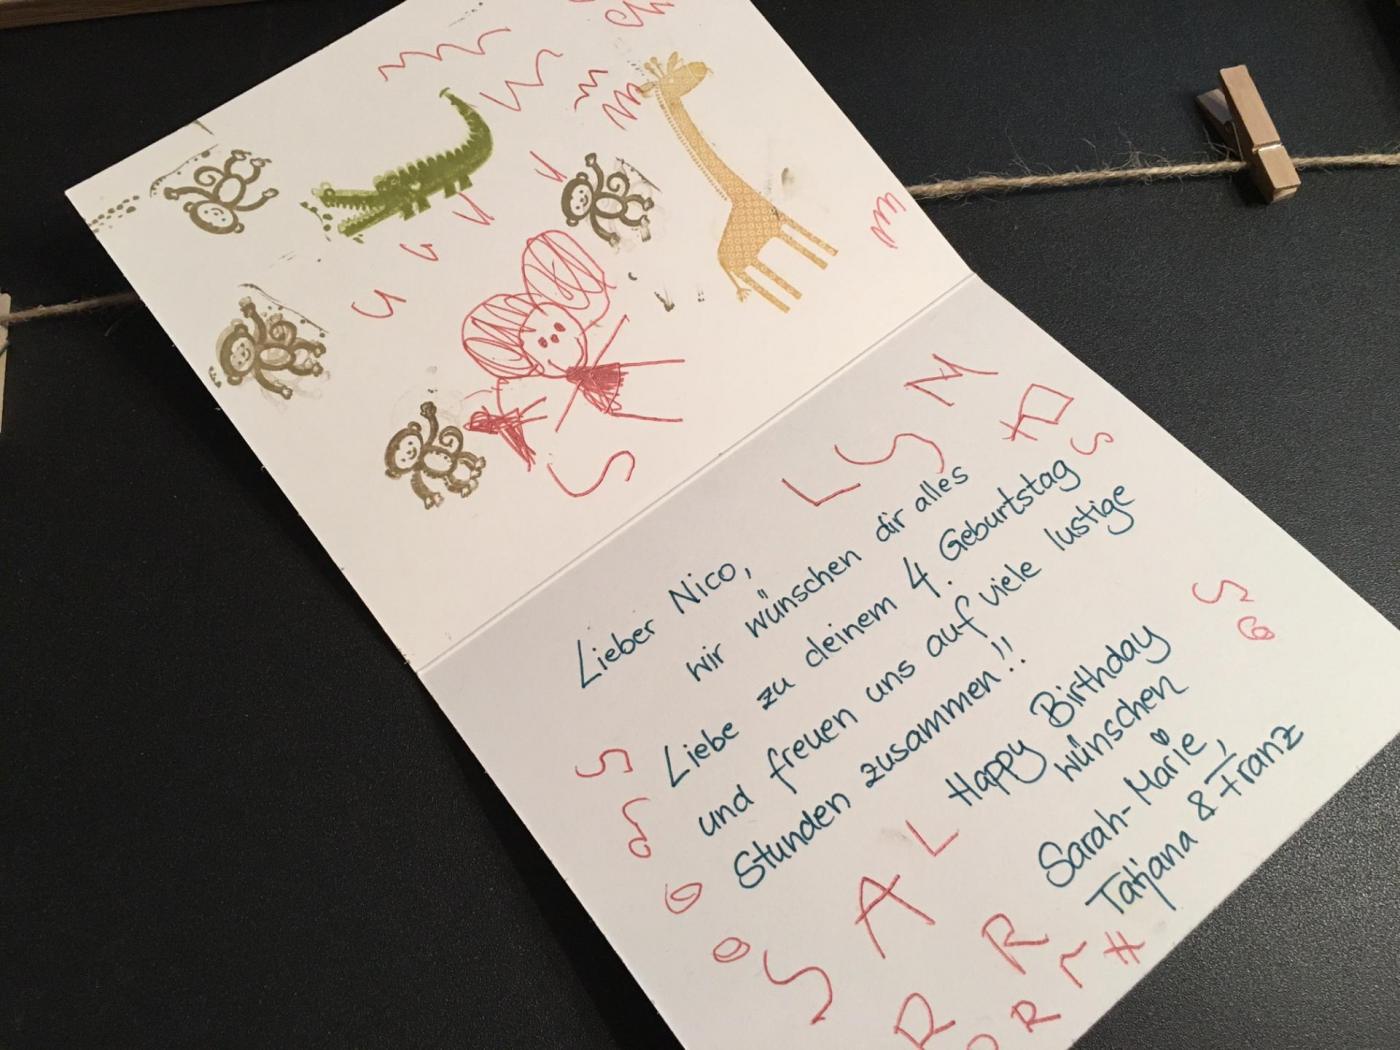 L S M
A
S
Lieber Nico,
wir wünschen dir alles
Liebe zu deinem 4. Geburtstag
und freuen uns auf viele lustige
Stunden zusammen!!
Happy Birthday
wünschen
Sarah-Marie,
Tatjana & Franz
S A L
R
R R